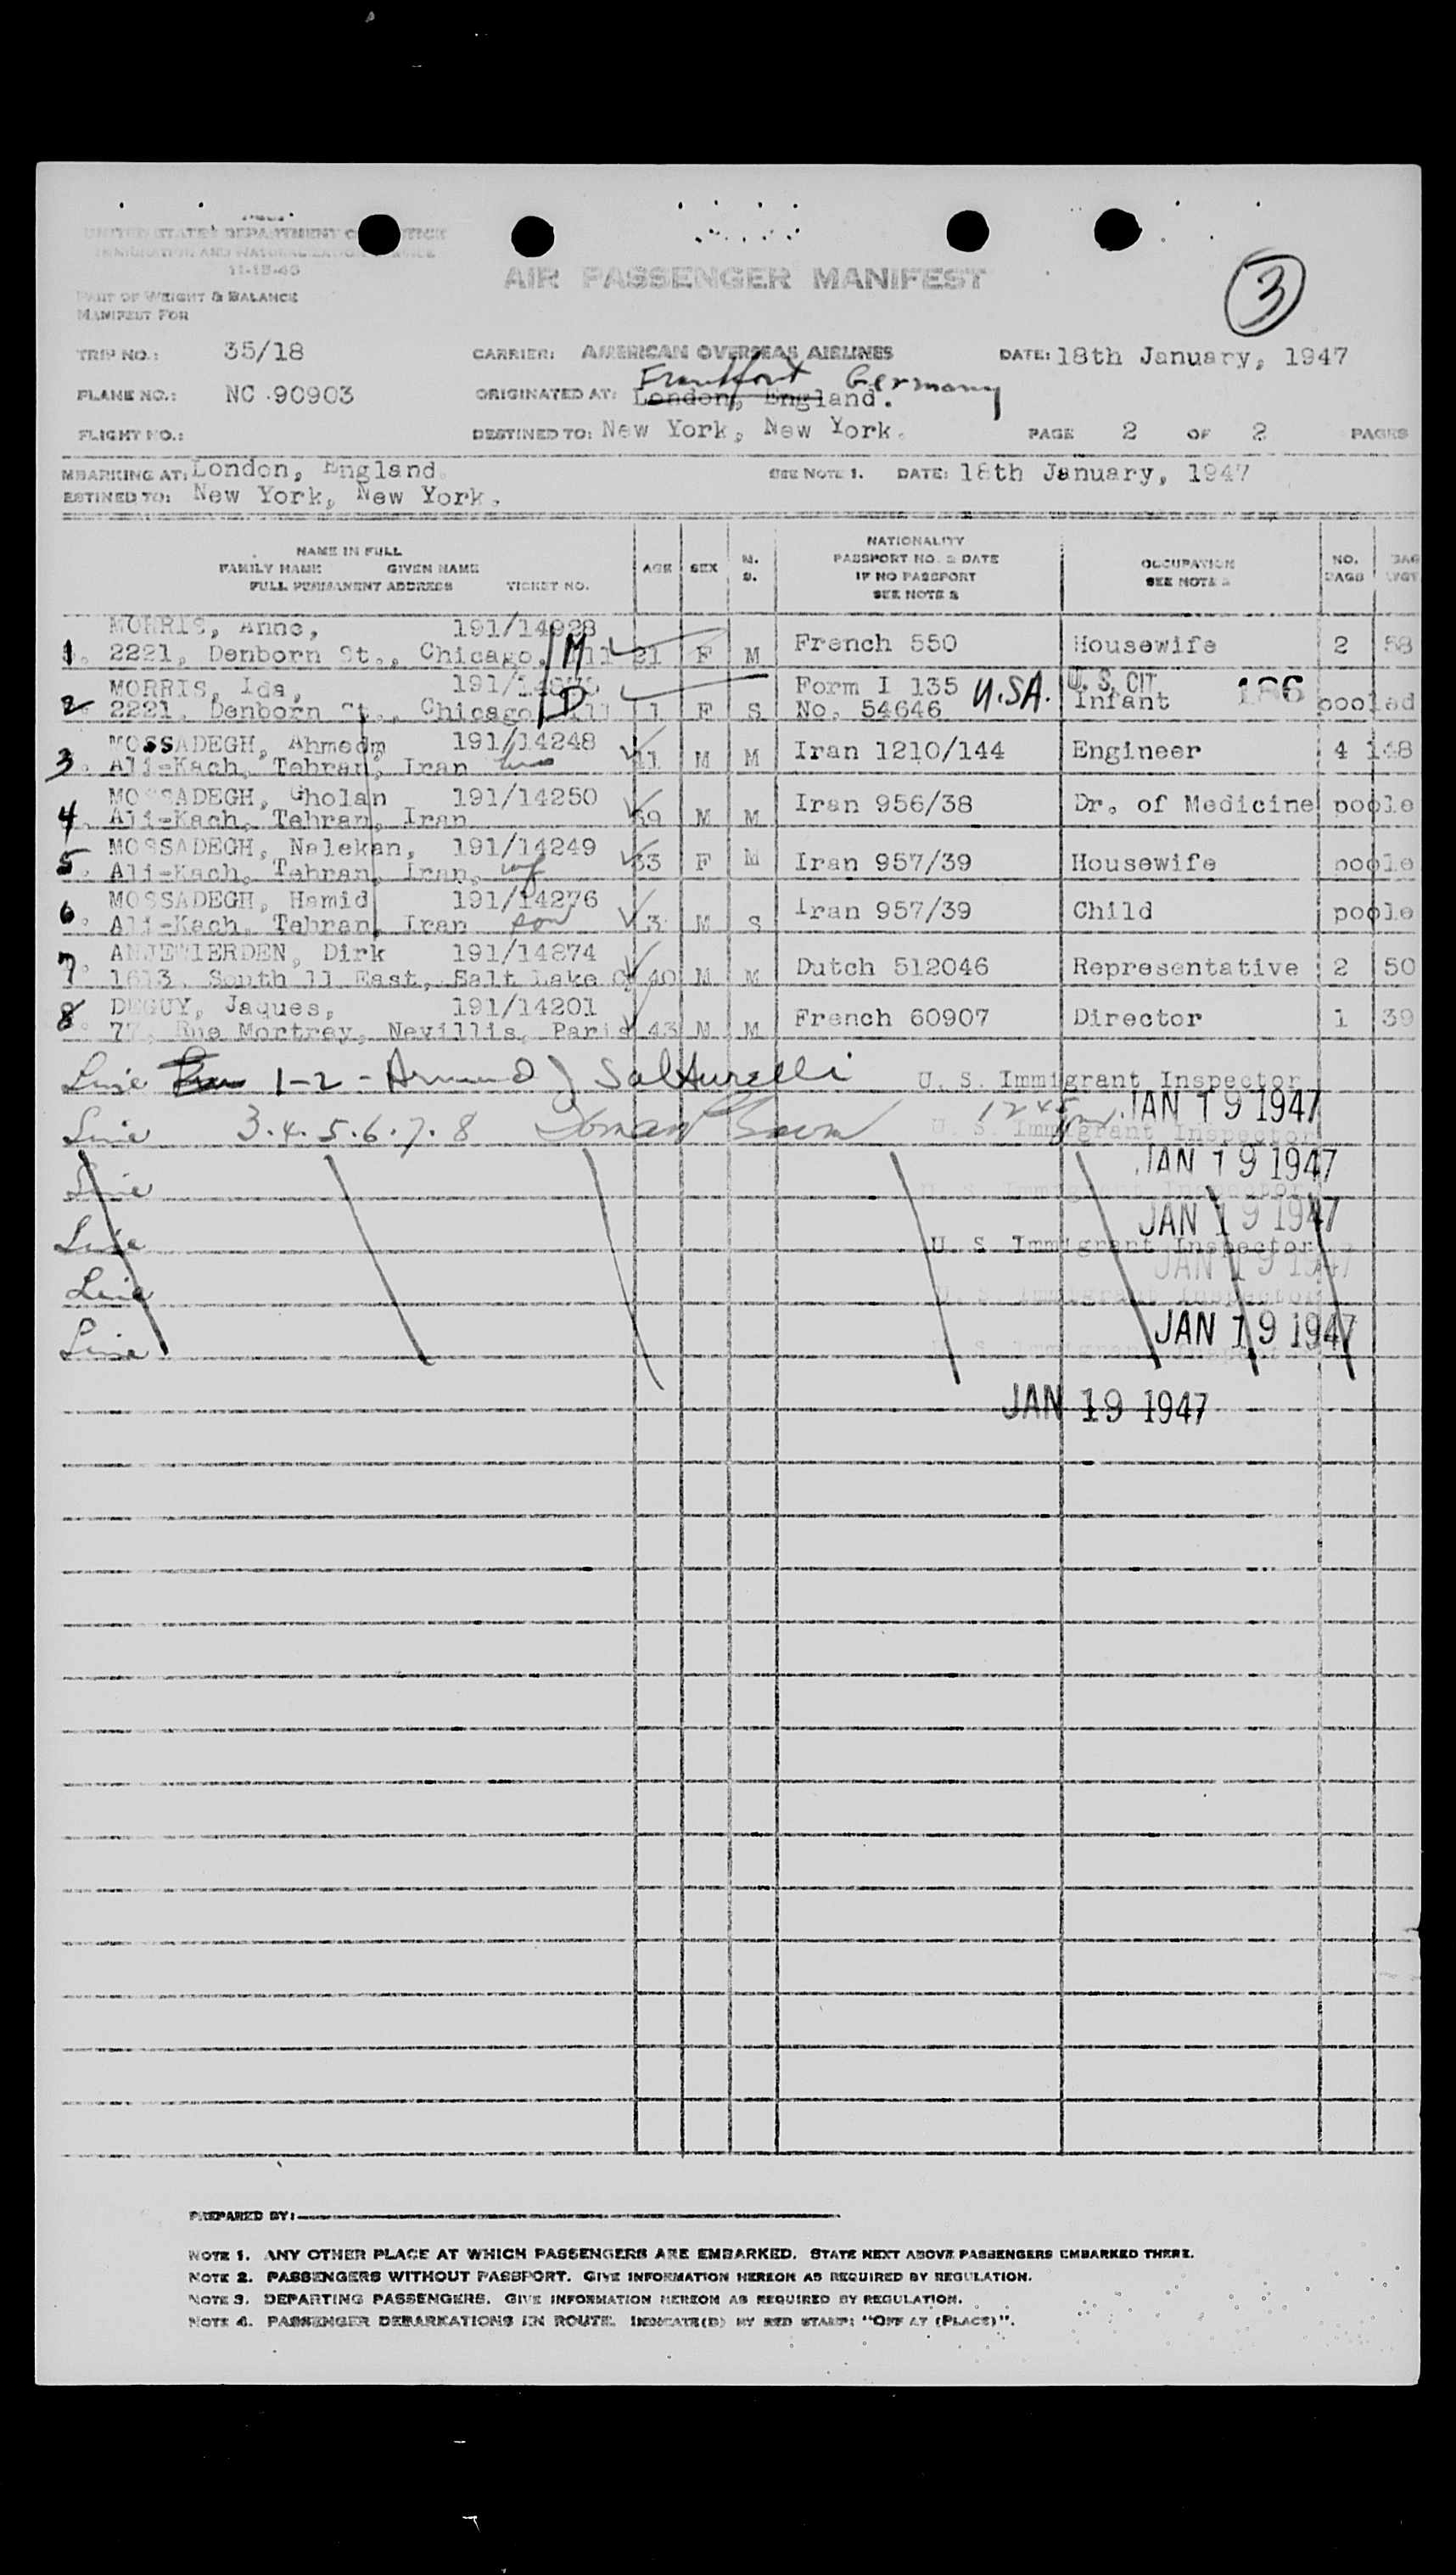 UNITED STATES DEPARTMENT OF JUSTICE
IMMIGRATION AND NATURALIZATION SERVICE
11-15-45
AIR PASSENGER MANIFEST
3
PART OF WEIGHT & BALANCE
MANIFEST FOR
TRIP NO.: 35/18 CARRIER: AMERICAN OVERSEAS AIRLINES DATE: 18th January, 1947
Frankfort Germany
PLANE NO.: NC 90903 ORIGINATED AT: London, England.
FLIGHT NO.: DESTINED TO: New York, New York. PAGE 2 OF 2 PAGES
MBARKING AT: London, England. SEE NOTE 1. DATE: 18th January, 1947
ESTINED TO: New York, New York.
NAME IN FULL
FAMILY NAME GIVEN NAME
FULL PERMANENT ADDRESS TICKET NO.
AGE SEX M. S.
NATIONALITY
PASSPORT NO. & DATE
IF NO PASSPORT
SEE NOTE 2
OCCUPATION
SEE NOTE
NO. BAGS
BAG WGT
MORRIS, Anne, 191/14928
1. 2221, Denborn St., Chicago, Ill M 21 F M French 550 Housewife 2
MORRIS, Ida, Form I 135 U.S.A. U. S. CIT 186
2 2221, Denborn St., Chicago, Ill D 1 F S No. 54646 Infant pooled
MOSSADEGH, Ahmedm 191/14248
3. Ali-Kach, Tehran, Iran M M Iran 1210/144 Engineer 4 148
MOSSADEGH, Gholan 191/14250
4. Ali-Kach, Tehran, Iran 39 M M Iran 956/38 Dr. of Medicine poole
MOSSADEGH, Nalekan, 191/14249
5. Ali-Kach, Tehran, Iran, wf 33 F M Iran 957/39 Housewife poole
MOSSADEGH, Hamid 191/14276
6. Ali-Kach, Tehran, Iran son 3 M S Iran 957/39 Child poole
ANJEWIERDEN, Dirk 191/14274
7. 1613, South 11 East, Salt Lake Cy 40 M M Dutch 512046 Representative 2 50
DEGUY, Jaques, 191/14201
8. 77, Rue Mortrey, Nevillis, Paris 43 M M French 60907 Director 1 39
Line 1-2 - Armand J Salturelli U. S. Immigrant Inspector
JAN 19 1947
Line 3.4.5.6.7.8 U. S. Immigrant Inspector
JAN 19 1947
Line U. S. Immigrant Inspector
JAN 19 1947
Line U. S. Immigrant Inspector
JAN 19 1947
Line U. S. Immigrant Inspector
JAN 19 1947
Line U. S. Immigrant Inspector
JAN 19 1947
PREPARED BY:
NOTE 1. ANY OTHER PLACE AT WHICH PASSENGERS ARE EMBARKED. STATE NEXT ABOVE PASSENGERS EMBARKED THERE.
NOTE 2. PASSENGERS WITHOUT PASSPORT. GIVE INFORMATION HEREON AS REQUIRED BY REGULATION.
NOTE 3. DEPARTING PASSENGERS. GIVE INFORMATION HEREON AS REQUIRED BY REGULATION.
NOTE 4. PASSENGER DEBARKATIONS EN ROUTE. INDICATE(D) BY RED STAMP: "OFF AT (PLACE)".